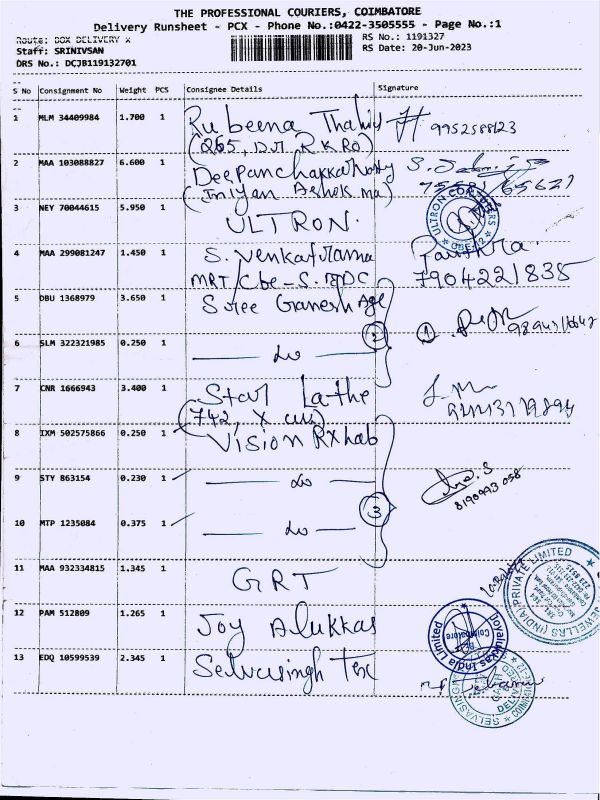 THE PROFESSIONAL COURIERS, COIMBATORE
Delivery Runsheet - PCX - Phone No.:0422-3505555 - Page No.:1
Route: BOX DELIVERY X
RS No.: 1191327
Staff: SRINIVSAN
RS Date: 20-Jun-2023
DRS No.: DCJB119132701
S No Consignment No Weight PCS Consignee Details Signature
1 MLM 34409984 1.700 1 Rubeena 9952588123
(265, RK RD)
2 MAA 103088827 6.600 1
3 NEY 70044615 5.950 1 ULTRON. ULTRON
4 MAA 299081247 1.450 1 S. Venkatrama Pavithra.
MRT/Cbe-S. 7904221835
5 DBU 1368979 3.650 1 Sree Ganesh Age
2 1
6 SLM 322321985 0.250 1 do
7 CNR 1666943 3.400 1 Star Lathe
(742, X cut)
8 IXM 502575866 0.250 1 Vision Rx lab
9 STY 863154 0.230 1 do
8190993058
10 MTP 1235084 0.375 1 do 3
11 MAA 932334815 1.345 1 GRT
JEWELLERS (INDIA) PRIVATE LIMITED
12 PAM 512809 1.265 1 Joy Alukkas
Joyalukkas India Limited
Coimbatore
13 EDQ 10599539 2.345 1 Selvasingh Tex
SELVASINGH